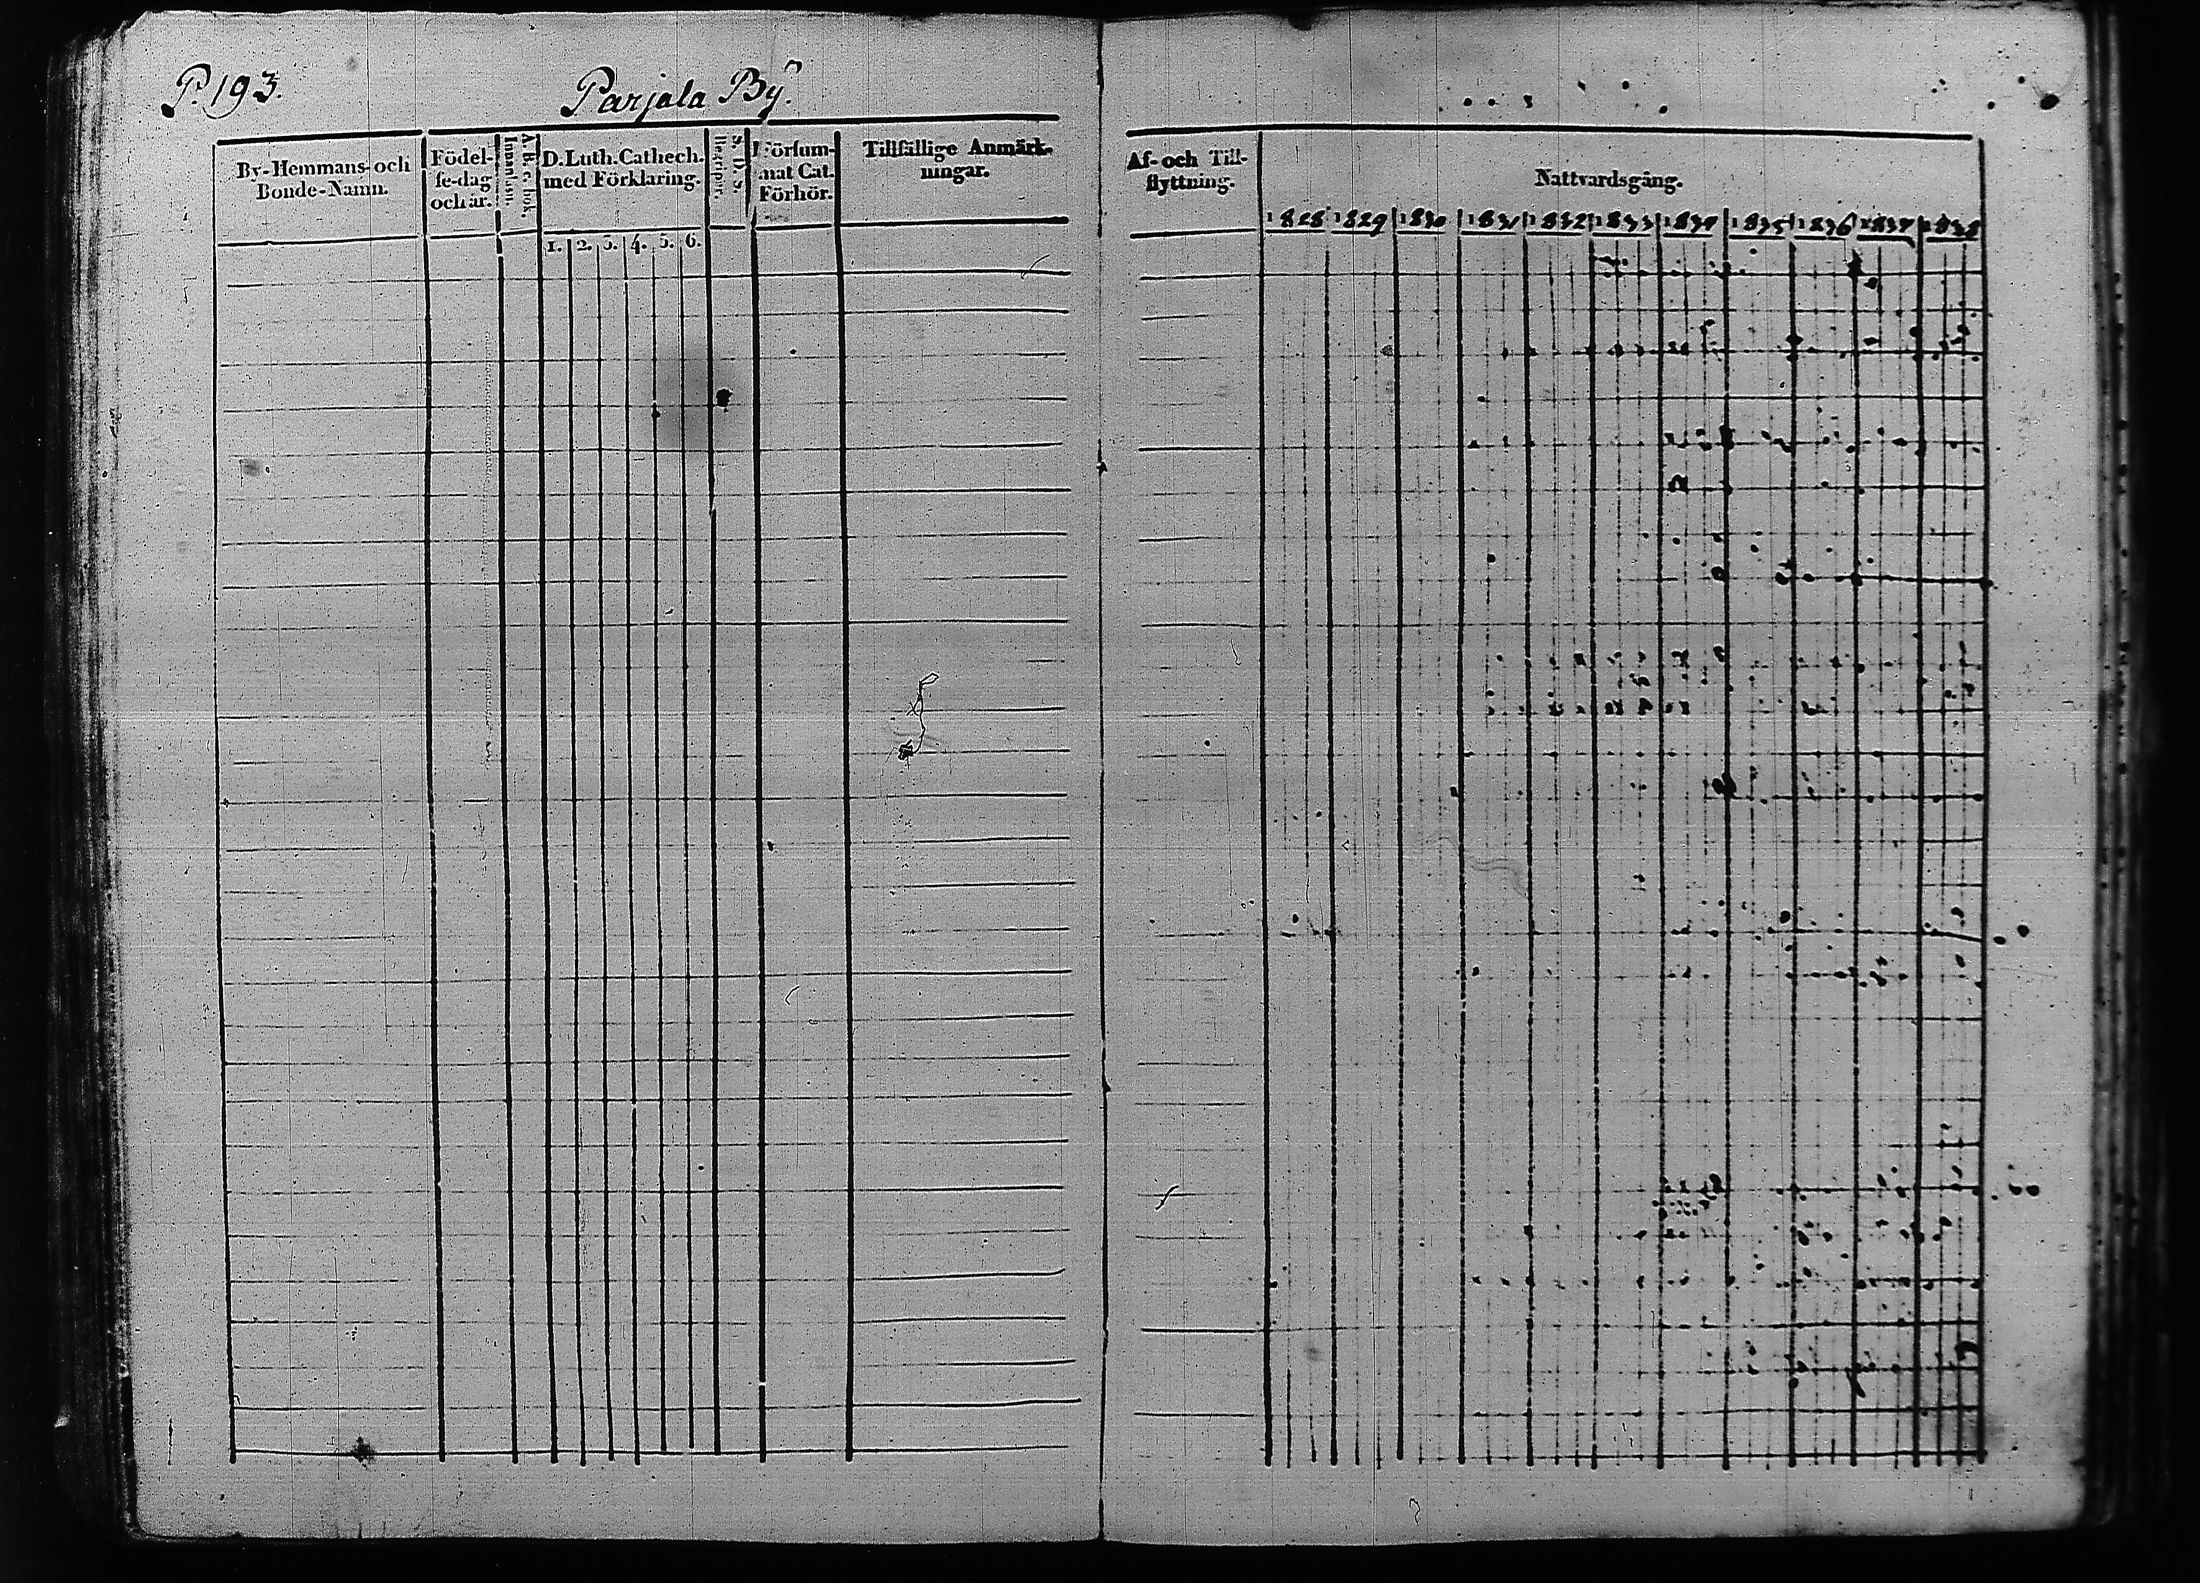 P. 193.
Parjala By.
By-Hemmans- och
Bonde-Namn.
Födel-
se-dag
och år.
A. B. c. bok.
Innanläsn.
D. Luth. Cathech.
med Förklaring.
1. 2. 3. 4. 5. 6.
S. D. S.
Begripit.
Försum-
mat Cat.
Förhör.
Tillfällige Anmärk-
ningar.
Af- och Till-
flyttning.
Nattvardsgång.
1828 1829 1830 1831 1832 1833 1834 1835 1836 1837 1838